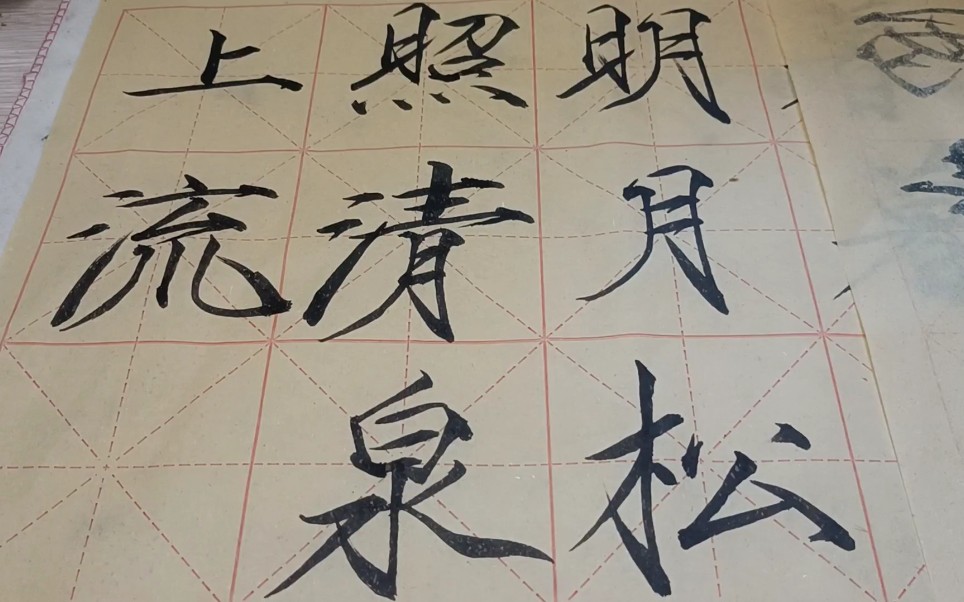 明月松
照清泉
上流